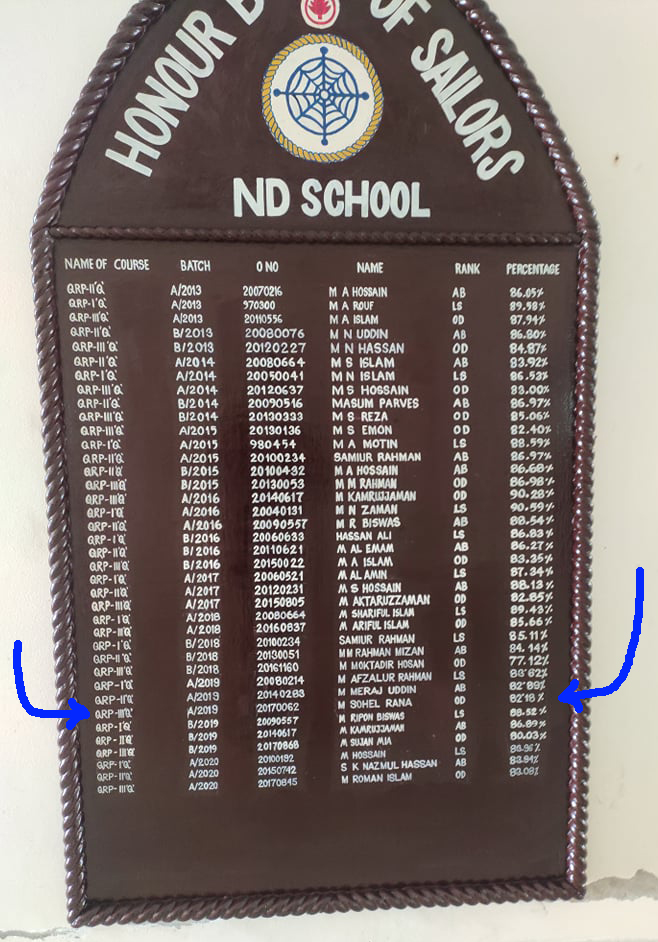 HONOUR OF SAILORS
ND SCHOOL
NAME OF COURSE BATCH O NO NAME RANK PERCENTAGE
QRP-II'Q' A/2013 20070216 M A HOSSAIN AB 86.05%
QRP-I'Q' A/2013 970300 M A ROUF LS 89.58%
QRP-III'Q' A/2013 20110556 M A ISLAM OD 87.94%
QRP-II'Q' B/2013 20080076 M N UDDIN AB 86.80%
QRP-III'Q' B/2013 20120227 M N HASSAN OD 84.87%
QRP-II'Q' A/2014 20080664 M S ISLAM AB 83.92%
QRP-I'Q' A/2014 20050041 M N ISLAM LS 86.53%
QRP-III'Q' A/2014 20120637 M S HOSSAIN OD 83.00%
QRP-II'Q' B/2014 20090516 MASUM PARVES AB 86.97%
QRP-III'Q' B/2014 20130333 M S REZA OD 85.06%
QRP-III'Q' A/2015 20130136 M S EMON OD 82.40%
QRP-I'Q' A/2015 980454 M A MOTIN LS 88.59%
QRP-II'Q' A/2015 20100234 SAMIUR RAHMAN AB 86.97%
QRP-II'Q' B/2015 20100432 M A HOSSAIN AB 86.68%
QRP-III'Q' B/2015 20130053 M M RAHMAN OD 86.98%
QRP-III'Q' A/2016 20140617 M KAMRUJJAMAN OD 90.28%
QRP-I'Q' A/2016 20040131 M N ZAMAN LS 90.59%
QRP-II'Q' A/2016 20090557 M R BISWAS AB 88.54%
QRP-I'Q' B/2016 20060633 HASSAN ALI LS 86.83%
QRP-II'Q' B/2016 20110621 M AL EMAM AB 86.27%
QRP-III'Q' B/2016 20150022 M A ISLAM OD 83.35%
QRP-I'Q' A/2017 20060521 M AL AMIN LS 87.34%
QRP-II'Q' A/2017 20120231 M S HOSSAIN AB 88.13%
QRP-III'Q' A/2017 20150805 M AKTARUZZAMAN OD 82.85%
QRP-I'Q' A/2018 20080664 M SHARIFUL ISLAM LS 89.43%
QRP-III'Q' A/2018 20160837 M ARIFUL ISLAM OD 85.66%
QRP-I'Q' B/2018 20100234 SAMIUR RAHMAN LS 85.11%
QRP-II'Q' B/2018 20130051 MM RAHMAN MIZAN AB 84.14%
QRP-III'Q' B/2018 20161160 M MOKTADIR HOSAN OD 77.12%
QRP-I'Q' A/2019 20080214 M AFZALUR RAHMAN LS
QRP-II'Q' A/2019 20140283 M MERAJ UDDIN AB
QRP-III'Q' A/2019 20170062 M SOHEL RANA OD
QRP-I'Q' B/2019 20090557 M RIPON BISWAS LS 88.52%
QRP-II'Q' B/2019 20140617 M KAMRUJJAMAN AB 86.89%
QRP-III'Q' B/2019 20170868 M SUJAN MIA OD 80.03%
QRP-I'Q' A/2020 20100192 M HOSSAIN LS
QRP-II'Q' A/2020 20150742 S K NAZMUL HASSAN AB
QRP-III'Q' A/2020 20170845 M ROMAN ISLAM OD 83.08%